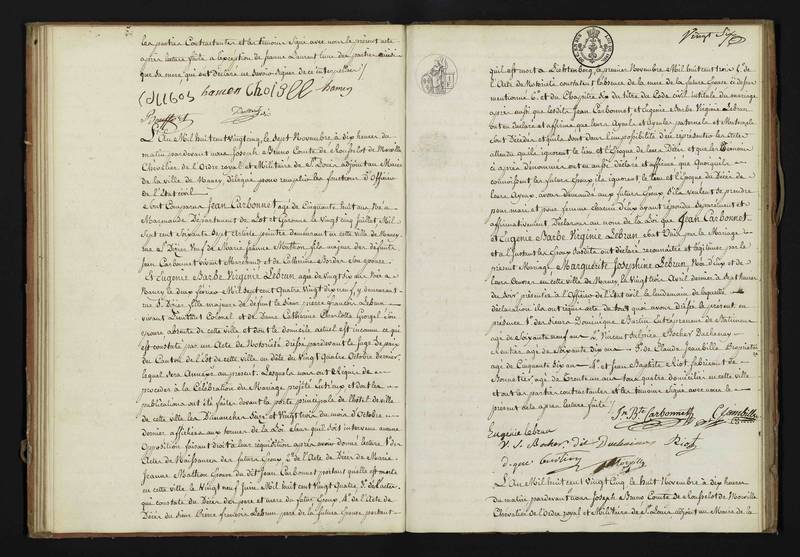 les parties Contractantes et les témoins signé avec nous le présent acte
après lecture faite à l'exception de
que sa mère, qui ont déclaré ne savoir signer de ce interpellés
hanon Choisell hamen
L'An Mil huit cent vingt cinq, le sept Novembre à dix heures du
matin pardevant nous Joseph Bruno Comte de
Chevalier de l'Ordre royal et Militaire de St Louis adjoint au Maire
de la ville de Nancy, délégué pour remplir les fonctions d'Officier
de l'Etat civil
Sont Comparus Jean Carbonnet agé de Cinquante huit ans Né à
Marmande Département de Lot et Garonne le vingt cinq juillet Mil
sept cent soixante sept Artiste peintre demeurant en cette ville de Nancy
rue St Dizier Veuf de Marie Jeanne Mathon fils majeur des défunts
Jean Carbonnet vivant Marchand et de Catherine Bordes son épouse
Et Eugénie Barbe Virginie Lebrun agée de vingt six ans Née à
Nancy le deux
Mil sept cent quatre vingt dix neuf, y demeurant
rue St Dizier fille majeure de défunt le Sieur pierre françois Lebrun
vivant Lieutenant Colonel et de Dame Catherine Charlotte
épouse absente de cette ville et dont le domicile actuel est inconnu ce qui
est constaté par un Acte de Notoriété dressé pardevant le Juge de paix
du Canton de l'Est de cette ville en date du vingt quatre Octobre dernier
lequel sera Annexé au présent. Lesquels nous ont Requis de
procéder à la Célébration du Mariage projeté entr'eux et dont les
publications ont été faites devant la porte principale de l'hôtel de ville
de cette ville les Dimanches Seize et Vingt trois du mois d'Octobre
dernier affichées aux termes de la Loi sans qu'il soit intervenu aucune
Opposition faisant droit à leur réquisition après avoir donné lecture 1° des
Actes de Naissances des futurs Epoux 2° de l'Acte de Décès de Marie
Jeanne Mathon Epouse du dit Jean Carbonnet portant qu'elle est morte
en cette ville le vingt neuf juin Mil huit cent vingt quatre 3° de l'acte
qui constate du Décès des père et mère du futur Epoux, 4° de l'Acte de
Décès du Sieur Pierre françois Lebrun père de la future Epouse portant
Vingt Six
qu'il est mort à
le premier Novembre Mil huit cent trois 5° de
l'Acte de Notoriété constatant l'absence de la mère de la future Epouse ci dessus
mentionné 6° et du Chapitre Six du titre du Code civil intitulé du mariage
après aussi que lesdits Jean Carbonnet et Eugénie Barbe Virginie Lebrun
ont eu déclaré et affirmé que leurs Ayeuls et Ayeules paternels et Maternels
sont Décédés et qu'ils sont dans l'impossibilité d'en représenter les Actes
attendu qu'ils ignorent le lieu et l'époque de leurs Décès et que les Témoins
ci après dénommés ont eu aussi déclaré et affirmé que quoiqu'ils
connaissent les futurs Epoux ils ignorent le lieu et l'époque du Décès de
leurs Ayeux, avons demandé aux futurs Epoux s'ils veulent se prendre
pour mari et pour femme chacun d'eux ayant répondu séparément et
affirmativement Déclarons au nom de la Loi que Jean Carbonnet
et Eugénie Barbe Virginie Lebrun sont Unis par le Mariage
et à l'instant les Epoux susdits ont déclaré reconnaître et légitimer par le
présent Mariage Marguerite Josephine Lebrun, Née d'eux et de
leurs œuvres en cette ville de Nancy le vingt trois Avril dernier à sept heures
du soir présentée à l'Officier de l'Etat civil le lendemain de laquelle
déclaration ils ont requis acte de tout quoi avons dressé le présent en
présence des Sieurs Dominique Bertin Entrepreneur de Batimens
agé de soixante neuf ans 2° Vincent
Rocher Duchenay
Rentier agé de soixante dix ans 3° de Claude Jeanbille Propriétaire
agé de Cinquante six ans 4° et Jean Baptiste Riot fabricant de
Bonnetier agé de trente un ans tous quatre domiciliés en cette ville
et ont les parties contractantes et les témoins signé avec nous le
présent acte après lecture faite
Jn Bte Carbonnet
Eugénie Lebrun
L'An Mil huit cent vingt Cinq, le huit Novembre à dix heures
du matin, pardevant nous Joseph Bruno Comte de
Chevalier de l'Ordre royal et Militaire de St Louis adjoint au Maire de la